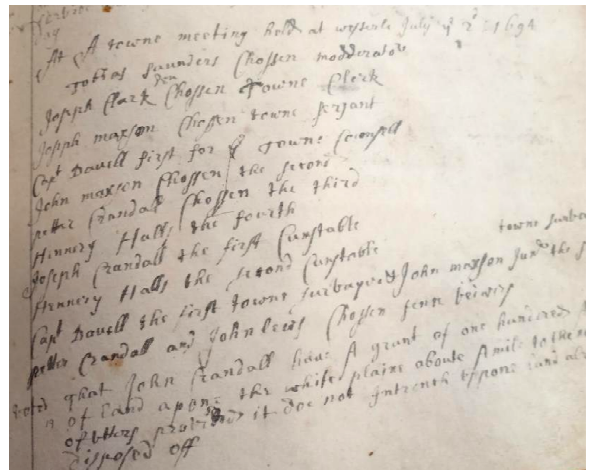 At A towne meeting held at westerle July ye 2d 1694
Tobias Saunders Chossen modderator
Joseph Clark Chossen Towne Clerk
Joseph maxson Chossen towne serjant
Capt Davell first for ye Towne Counsell
John maxson Chossen the second
petter Crandall Chossen the third
Hennery Halls the fourth
Joseph Crandall the first Cunstable
Hennery Halls the second Cunstable
Capt Davell the first towne survayer John maxson Junr the
towne
petter Crandall and John lewis Chossen fenn vewers
voted that John Crandall have A grant of one hundered
of land apone the white plaine aboute A mile to the
of others provided it doe not Intrench uppone land
disposed off